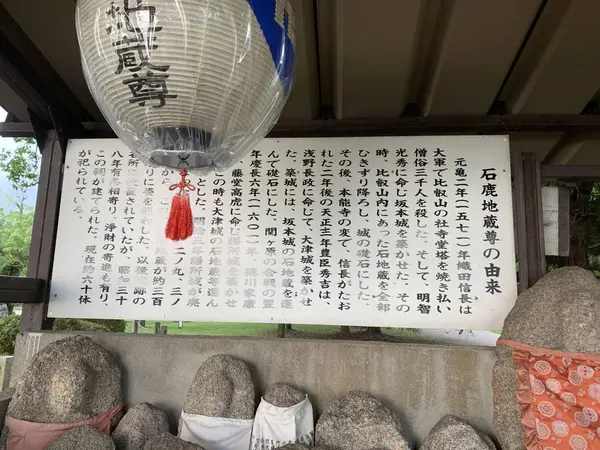 地蔵尊
石鹿地蔵尊の由来
元亀二年(一五七一)織田信長は
大軍で比叡山の社寺堂塔を焼き払い
僧俗三千人を殺した。そして、明智
光秀に命じ坂本城を築かせた。その
時、比叡山内にあった石地蔵を全部
ひきずり降ろし、城の礎石にした。
その後、本能寺の変で、信長がたお
れた二年後の天正十三年豊臣秀吉は、
浅野長政に命じて、大津城を築かせ
た。築城には、坂本城の石地蔵を運
んで礎石にした。関ヶ原の合戦の翌
年慶長六年(一六〇一)、徳川家康
、藤堂高虎に命じ膳所城を築かせ
この時も大津城の石地蔵等運ん
とした。明治三年膳所城が廃
二ノ丸、三ノ
地蔵が約三百
りに姿を
した。以後
跡の
名所に放置されていたが、昭和三十
八年有志相寄り、浄財の寄進も有り、
この祠が建てられた。現在約六十体
が祀られている。